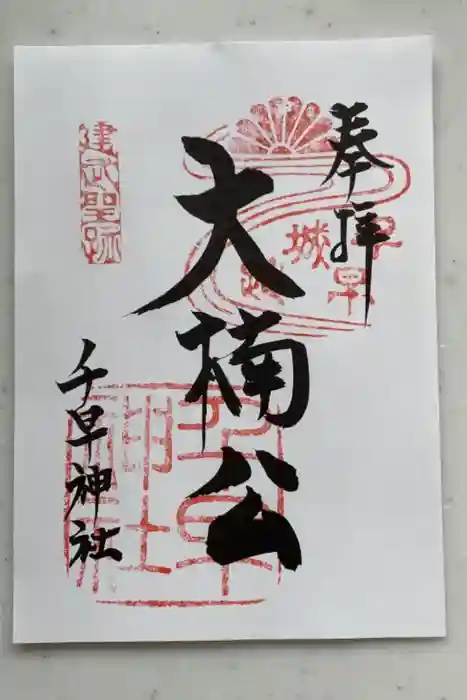 奉拝
千早
城跡
大楠公
建武聖跡
千早神社
千早
神社